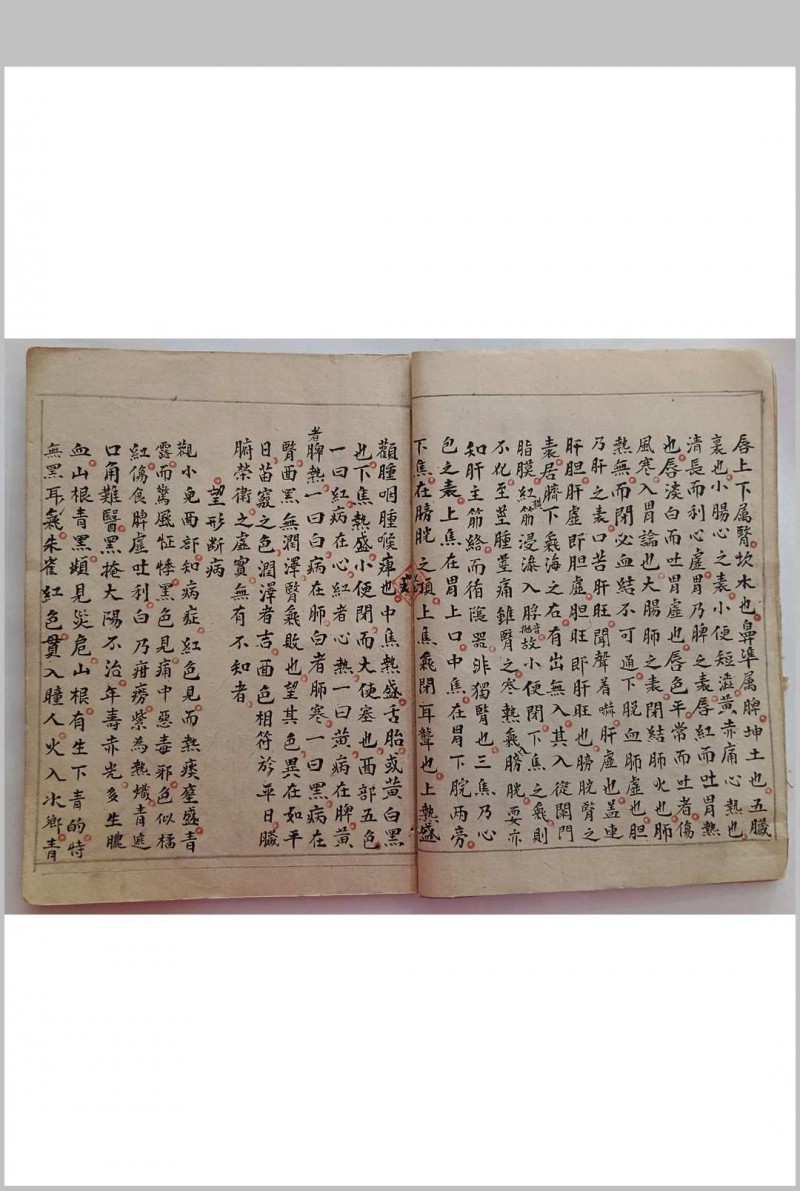 唇上下属腎坎水也鼻準属脾坤土也五臟
裏也小腸心之表小便短滋黃赤痛心熱也
清長而利心虛胃乃脾之表唇紅而吐胃熱
也唇淡白而吐胃虛也唇色平常而吐者傷
風寒入胃論也大腸肺之表閉結肺火也肺
熱無而閉必血結不可通下脫血肺虛也胆
乃肝之表口苦肝旺聞聲着嚇肝虛也盖連
肝胆肝虛即胆虛胆旺即肝旺也膀胱腎之
表居臍下氣海之右有出無入其入從闌門
脂膜紅筋浸滲入脬故小便閉下焦之氣則
不化至莖腫莖痛錐腎之寒熱氣膀胱耍亦
知肝主筋絡而循陰器非獨腎也三焦乃心
包之表上焦在胃上口中焦在胃下脘兩旁
下焦在膀胱之頭上焦氣閉耳聾也上熱盛
顴腫咽腫喉痺也中焦熱盛舌胎或黃白黑
也下焦熱盛小便閉而大便塞也面部五色
一曰紅病在心紅者心熱一曰黃病在脾黃
者脾熱一曰白病在肺白者肺寒一曰黑病在
腎面黑無潤澤腎氣敗也望其色異在如平
日苗竅之色潤澤者吉面色相符於平日臟
腑榮衛之虛實無有不知者
望形断病
觀小兒面部知病症紅色見而熱痰壅盛青
露而驚風怔悸黑色見痛中惡毒邪色似橘
紅傷食脾虛吐利白乃疳癆紫為熱熾青遮
口角難醫黑掩大陽不治年壽赤光多生膿
血山根青黑頻見災危山根有生下青的特
無黑耳氣朱雀紅色貫入瞳人火入水鄉青